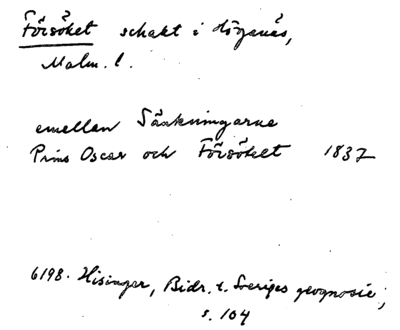 Försöket schakt i Höganäs,
Malm. l.
emellan Sänkningarne
Prins Oscar och Försöket 1837
6198. Hisinger, Bidr. t. Sveriges geognosie,
s. 104